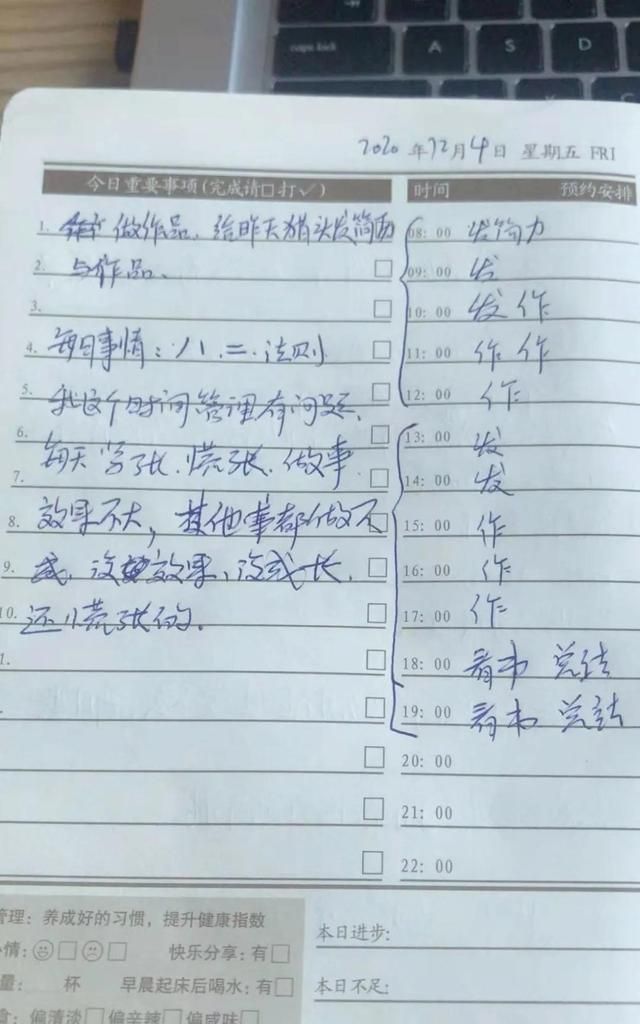 caps lock
A
S
D
2020 年 12 月 4 日 星期五 FRI
今日重要事项(完成请□打✓)
时间 预约安排
1. 做作品、给昨天猎头发简历
2. 与作品、
3.
4. 每日事情：八.二.法则
5. 我这个时间管理有问题、
6.
每天 紧张.慌张.做事
7.
8. 效果不大，其他事都做不
9. 成、没效果、没成长、
10. 还慌张做、
1.
08: 00 发简历
09: 00 发
10: 00 发 作
11: 00 作 作
12: 00 作
13: 00 发
14: 00 发
15: 00 作
16: 00 作
17: 00 作
18: 00 看书 总结
19: 00 看书 总结
20: 00
21: 00
22: 00
管理: 养成好的习惯，提升健康指数
心情: □ □ 快乐分享: 有□
量: 杯 早晨起床后喝水: 有□
食: 偏清淡□ 偏辛辣□ 偏咸味□
本日进步:
本日不足: